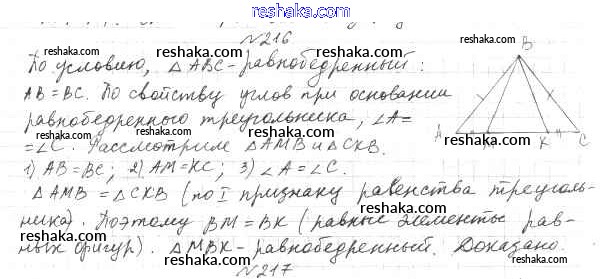 reshaka.com
№216
По условию, △ABC - равнобедренный:
AB = BC. По свойству углов при основании
равнобедренного треугольника, ∠A =
= ∠C. Рассмотрим △AMB и △CKB.
1) AB = BC; 2) AM = KC; 3) ∠A = ∠C.
△AMB = △CKB (по I признаку равенства треуголь-
ника). Поэтому BM = BK (равные элементы рав-
ных фигур). △MBK - равнобедренный. Доказано.
№217
B
A
K
C
reshaka.com
reshaka.com
reshaka.com
reshaka.com
reshaka.com
reshaka.com
reshaka.com
reshaka.com
reshaka.com
reshaka.com
reshaka.com
reshaka.com